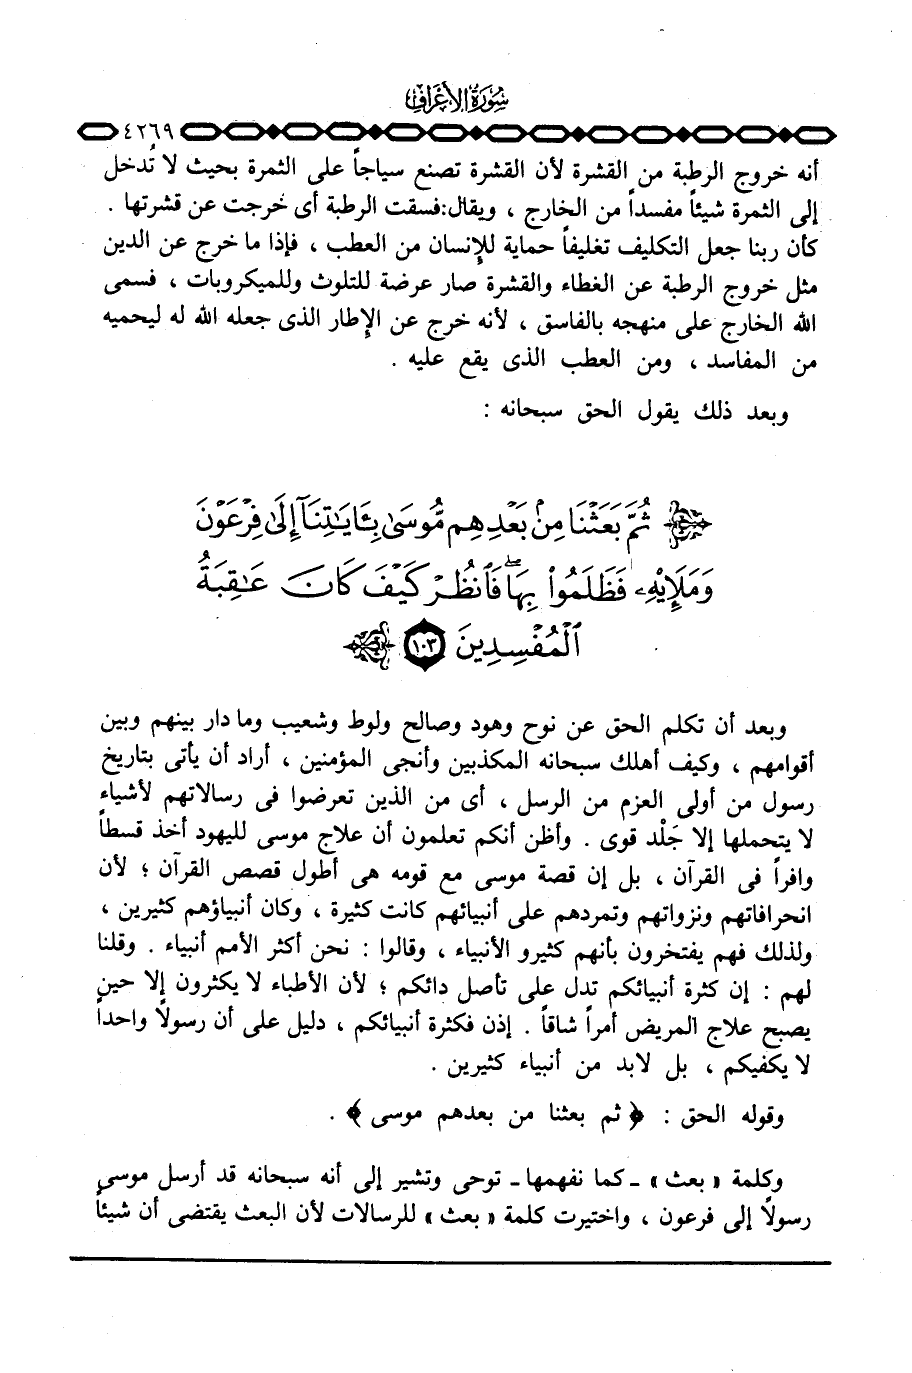 سورة الأعراف
٤٢٦٩
أنه خروج الرطبة من القشرة لأن القشرة تصنع سياجاً على الثمرة بحيث لا تُدخل
إلى الثمرة شيئاً مفسداً من الخارج ، ويقال:فسقت الرطبة أى خرجت عن قشرتها .
كأن ربنا جعل التكليف تغليفاً حماية للإنسان من العطب ، فإذا ما خرج عن الدين
مثل خروج الرطبة عن الغطاء والقشرة صار عرضة للتلوث وللميكروبات ، فسمى
الله الخارج على منهجه بالفاسق ، لأنه خرج عن الإطار الذى جعله الله له ليحميه
من المفاسد ، ومن العطب الذى يقع عليه .
وبعد ذلك يقول الحق سبحانه :
ثُمَّ بَعَثْنَا مِنۢ بَعْدِهِم مُّوسَىٰ بِـَٔايَٰتِنَآ إِلَىٰ فِرْعَوْنَ
وَمَلَإِي۟هِۦ فَظَلَمُوا۟ بِهَا ۖ فَٱنظُرْ كَيْفَ كَانَ عَٰقِبَةُ
ٱلْمُفْسِدِينَ ١٠٣
وبعد أن تكلم الحق عن نوح وهود وصالح ولوط وشعيب وما دار بينهم وبين
أقوامهم ، وكيف أهلك سبحانه المكذبين وأنجى المؤمنين ، أراد أن يأتى بتاريخ
رسول من أولى العزم من الرسل ، أى من الذين تعرضوا فى رسالاتهم لأشياء
لا يتحملها إلا جَلْد قوى . وأظن أنكم تعلمون أن علاج موسى لليهود أخذ قسطاً
وافراً فى القرآن ، بل إن قصة موسى مع قومه هى أطول قصص القرآن ؛ لأن
انحرافاتهم ونزواتهم وتمردهم على أنبيائهم كانت كثيرة ، وكان أنبياؤهم كثيرين ،
ولذلك فهم يفتخرون بأنهم كثيرو الأنبياء ، وقالوا : نحن أكثر الأمم أنبياء . وقلنا
لهم : إن كثرة أنبيائكم تدل على تأصل دائكم ؛ لأن الأطباء لا يكثرون إلا حين
يصبح علاج المريض أمراً شاقاً . إذن فكثرة أنبيائكم ، دليل على أن رسولاً واحداً
لا يكفيكم ، بل لابد من أنبياء كثيرين .
وقوله الحق : ﴿ ثم بعثنا من بعدهم موسى ﴾ .
وكلمة « بعث » ـ كما نفهمها ـ توحى وتشير إلى أنه سبحانه قد أرسل موسى
رسولاً إلى فرعون ، واختيرت كلمة « بعث » للرسالات لأن البعث يقتضى أن شيئاً